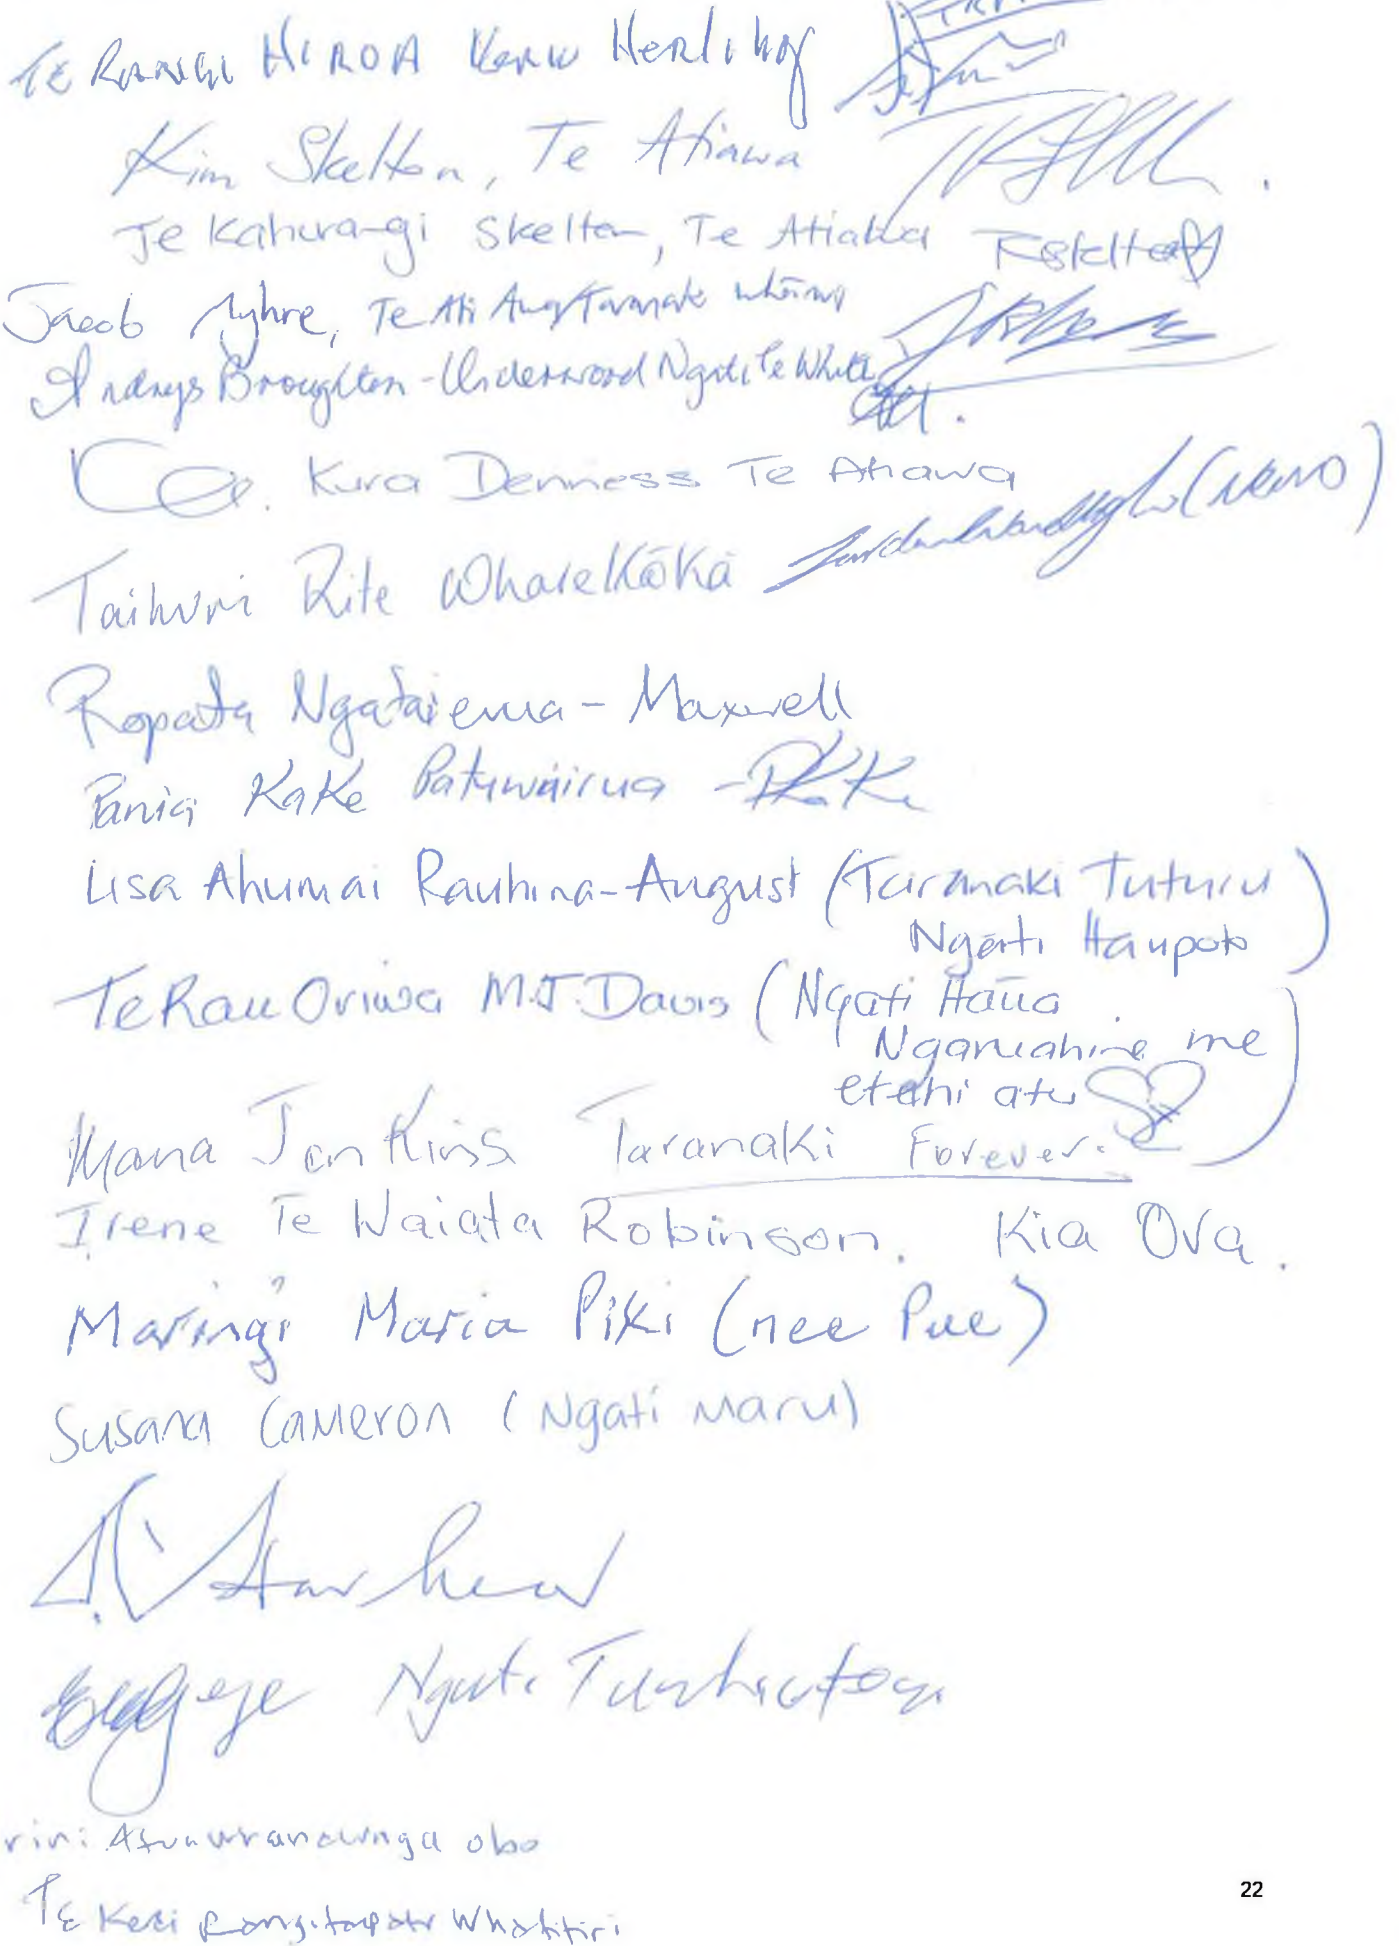 Te RANGI HIROA Herlihy
Kim Skelton, Te Atiawa
Te Kahurangi Skelton, Te Atiawa
Jacob Myhre, Te Ati Awa/Taranaki whānui
Broughton-Underwood Ngati Te Whiti
Kura Denness Te Atiawa
Taihuri Rite Wharekōkā
Ropata Ngataierua - Maxwell
Pania Kake Patuwairua -
Lisa Ahumai Rauhina-August (Taranaki Tuturu
Ngāti Haupoto)
Te Rau Oriwa M.J. Davis (Ngati Hāua
Ngaruahine me
etahi atu)
Mana Jenkins Taranaki Forever.
Irene Te Waiata Robinson. Kia Ora.
Maringi Maria Piki (nee Pue)
Susana Cameron (Ngati Maru)
Ngati
obo
Te Keri Whatitiri
22